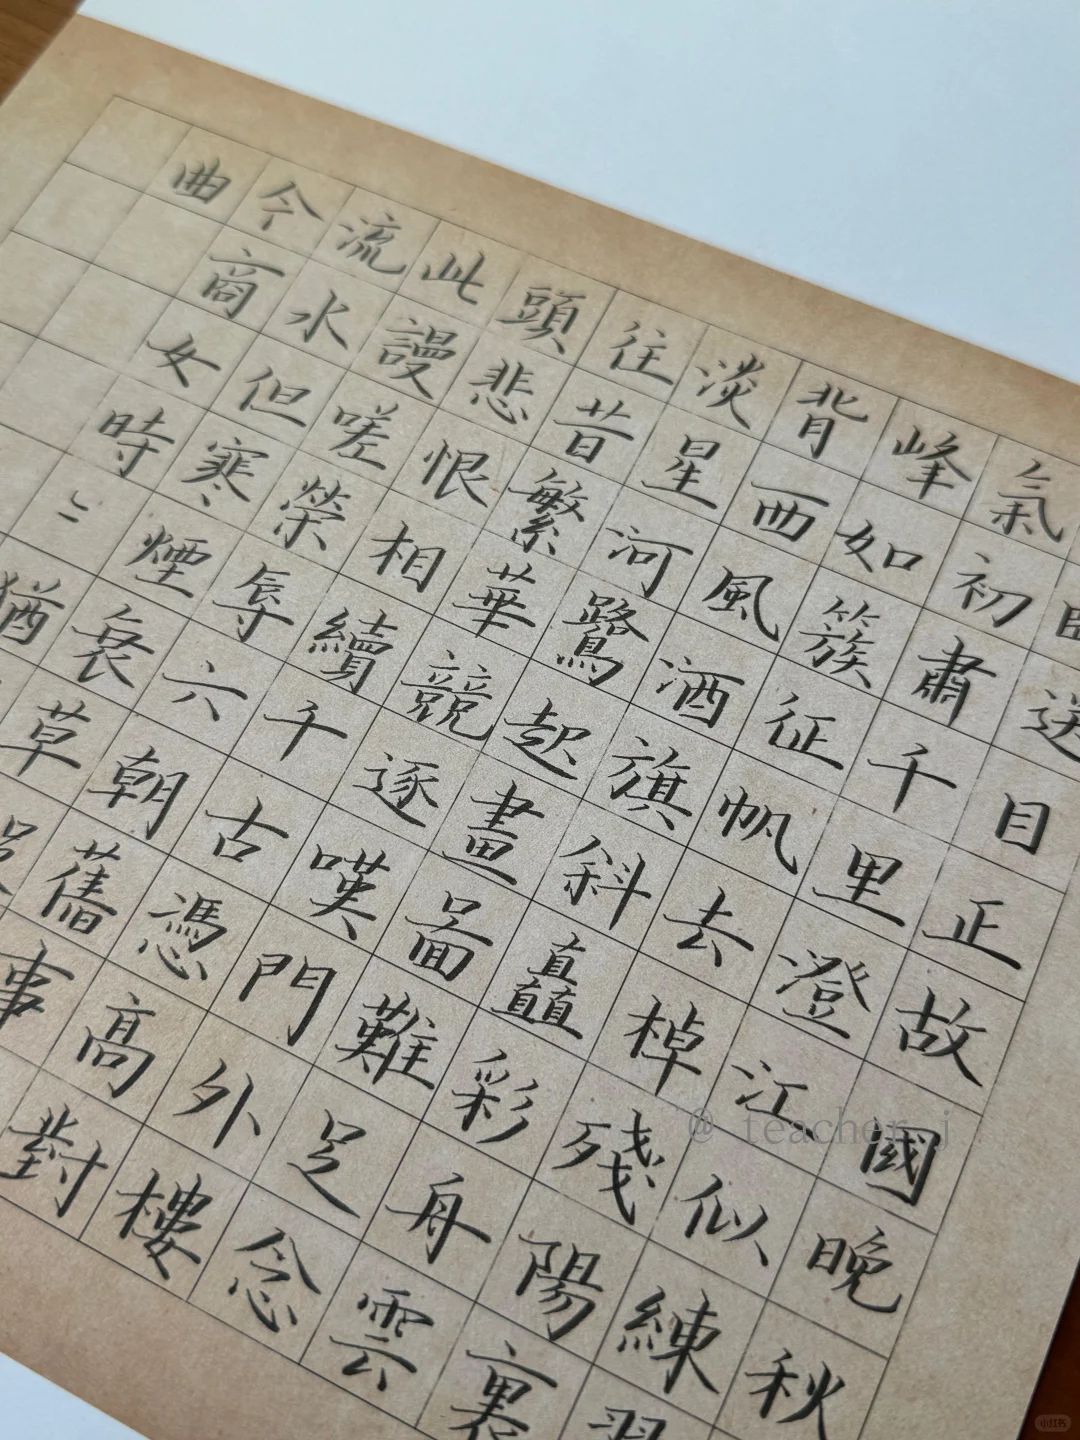 送目正故國晚秋
氣初肅千里澄江似練
峰如簇征帆去棹殘陽裏
背西風酒旗斜矗彩舟雲
淡星河鷺起畫啚難足念
往昔繁華競逐嘆門外樓
頭悲恨相續千古憑高對
此謾嗟榮辱六朝舊事
流水但寒煙衰草
今商女時〻猶
曲
@ teacher_j
小红书